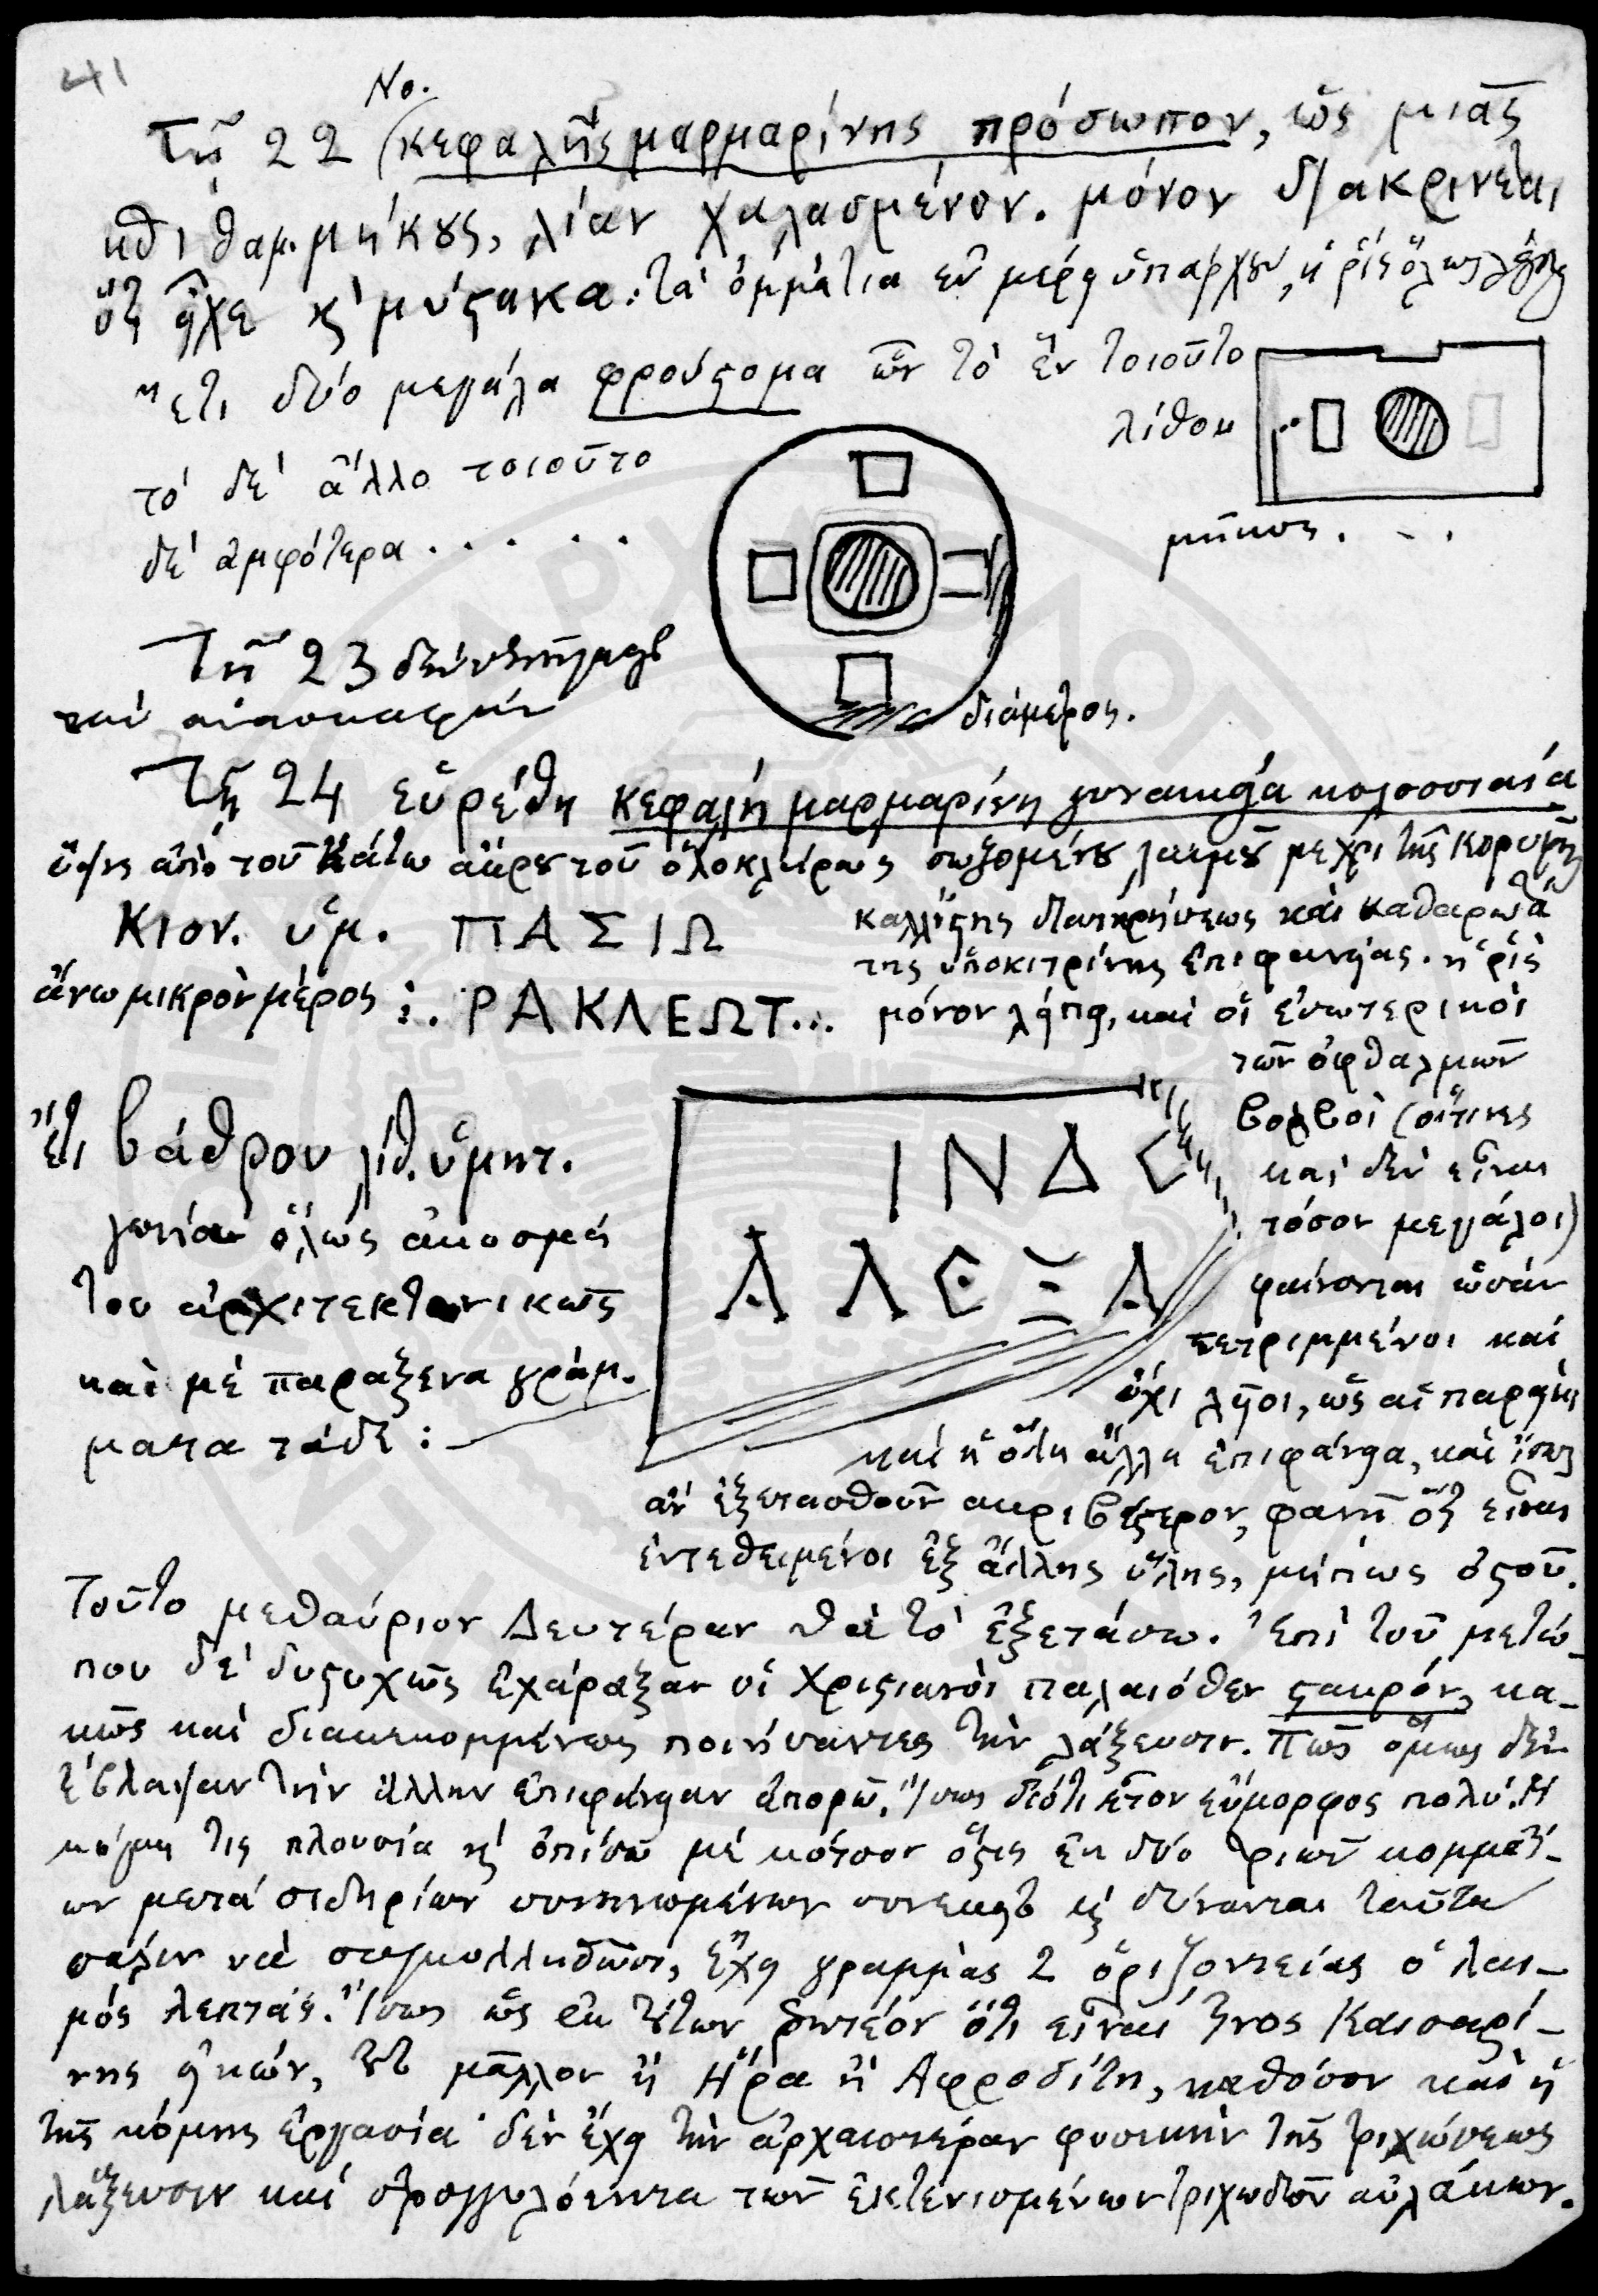 41
No.
Τῇ 22 (κεφαλῆς μαρμαρίνης πρόσωπον, ὡς μιᾶς
ϗθιθαμ. μήκȣς, λίαν χαλασμένον. μόνον διακρίνεται
ὅτι εἶχε ϗ μύϛακα. τὰ ὀμμάτια ἐν μέρει ὑπάρχȣν, ἡ ρὶς ὅλως
Ἔτι δύο μεγάλα φρούϛομα ὧν τὸ ἓν τοιοῦτο
λίθου
τὸ δὲ ἄλλο τοιοῦτο
μῆκος. . .
δὲ ἀμφότερα . . . . .
Τῇ 23 δὲν
ἀνασκαφὴν
διάμετρος.
Τῇ 24 εὑρέθη κεφαλὴ μαρμαρίνη γυναικεία κολοσσιαία
ὕψης ἀπὸ τοῦ κάτω ἄκρȣ τοῦ ὁλοκλήρως σωζομένȣ λαιμȣ μέχρι τῆς κορυφῆς
Κιον. ὑμ. ΠΑΣΙΩ
καλλίϛης διατηρήσεως καὶ καθαρωτά
της ὑποκιτρίνης ἐπιφανείας. ἡ ρὶς
ἄνω μικρὸν μέρος :. ΡΑΚΛΕΩΤ...
μόνον λείπει, καὶ οἱ ἐσωτερικοὶ
τῶν ὀφθαλμῶν
βολβοὶ (οἵτινες
καὶ δὲν εἶναι
τόσον μεγάλοι)
φαίνονται ὡσὰν
τετριμμένοι καὶ
ὄχι λεῖοι, ὡς αἱ παρειαὶ
καὶ ἡ ὅλη ἄλλη ἐπιφάνεια, καὶ ἴσως
ἂν ἐξετασθοῦν ακριβέϛερον, φανῇ ὅτι εἶναι
ἐντεθειμένοι ἐξ ἄλλης ὕλης, μήπως ὀϛοῦ.
Ἔτι βάθρου λίθ. ὑμητ.
γωνία ὅλως ἀκοσμή
του ἀρχιτεκτονικῶς
καὶ μὲ παράξενα γράμ.
ματα τάδε :
ΙΝΔΟ
ΑΛΕΞΑ
Τοῦτο μεθαύριον Δευτέραν θὰ τὸ ἐξετάσω. Ἐπὶ τοῦ μετώ-
που δὲ δυϛυχῶς ἐχάραξαν οἱ Χριϛιανοὶ παλαιόθεν ϛαυρόν, κα-
κῶς καὶ διακεκομμένως ποιήσαντες τὴν λάξευσιν. Πῶς ὅμως δὲν
ἔβλαψαν τὴν ἄλλην ἐπιφάνειαν ἀπορῶ. Ἴσως διότι ἦτον εὔμορφος πολύ. Ἡ
κόμη τις πλουσία ϗ ὀπίσω μὲ κότσον ὅϛις ἐκ δύο τριῶν κομματί-
ων μετὰ σιδηρίων συνηνωμένων ϗ δύνανται ταῦτα
πάλιν νὰ συγκολληθῶσι, ἔχει γραμμὰς 2 ὁριζοντείας ὁ λαι-
μὸς λεπτάς. Ἴσως ὡς ἐκ τȣτων ῥητέον ὅτι εἶναί τινος Καισαρί-
νης εἰκών, μᾶλλον ἢ Ἥρα ἢ Ἀφροδίτη, καθόσον καὶ ἡ
τῆς κόμης ἐργασία δὲν ἔχει τὴν ἀρχαιοτέραν φυσικὴν τῆς τριχώσεως
λάξευσιν καὶ στρογγυλόεντα τῶν ἐκτενισμένων τριχωδῶν αὐλάκων.